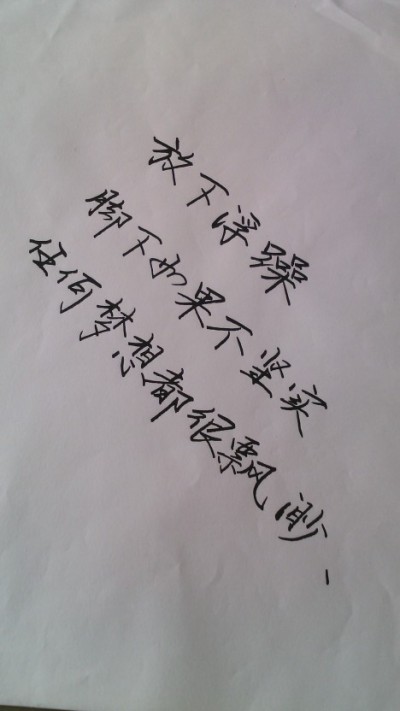 放下浮躁
脚下如果不坚实
任何梦想都很飘渺、